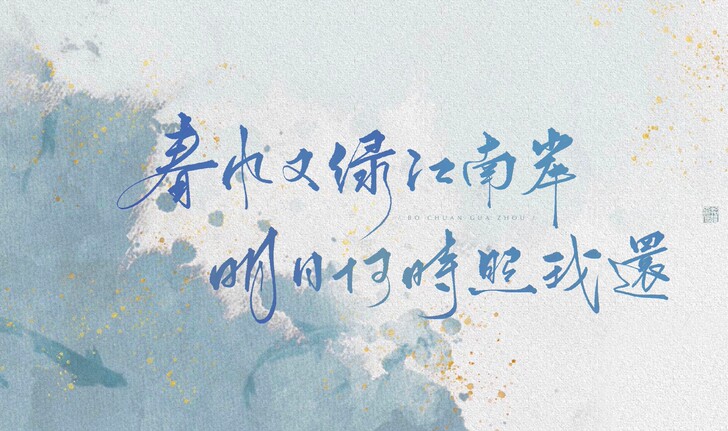 春风又绿江南岸
BO CHUAN GUA ZHOU
明月何時照我還